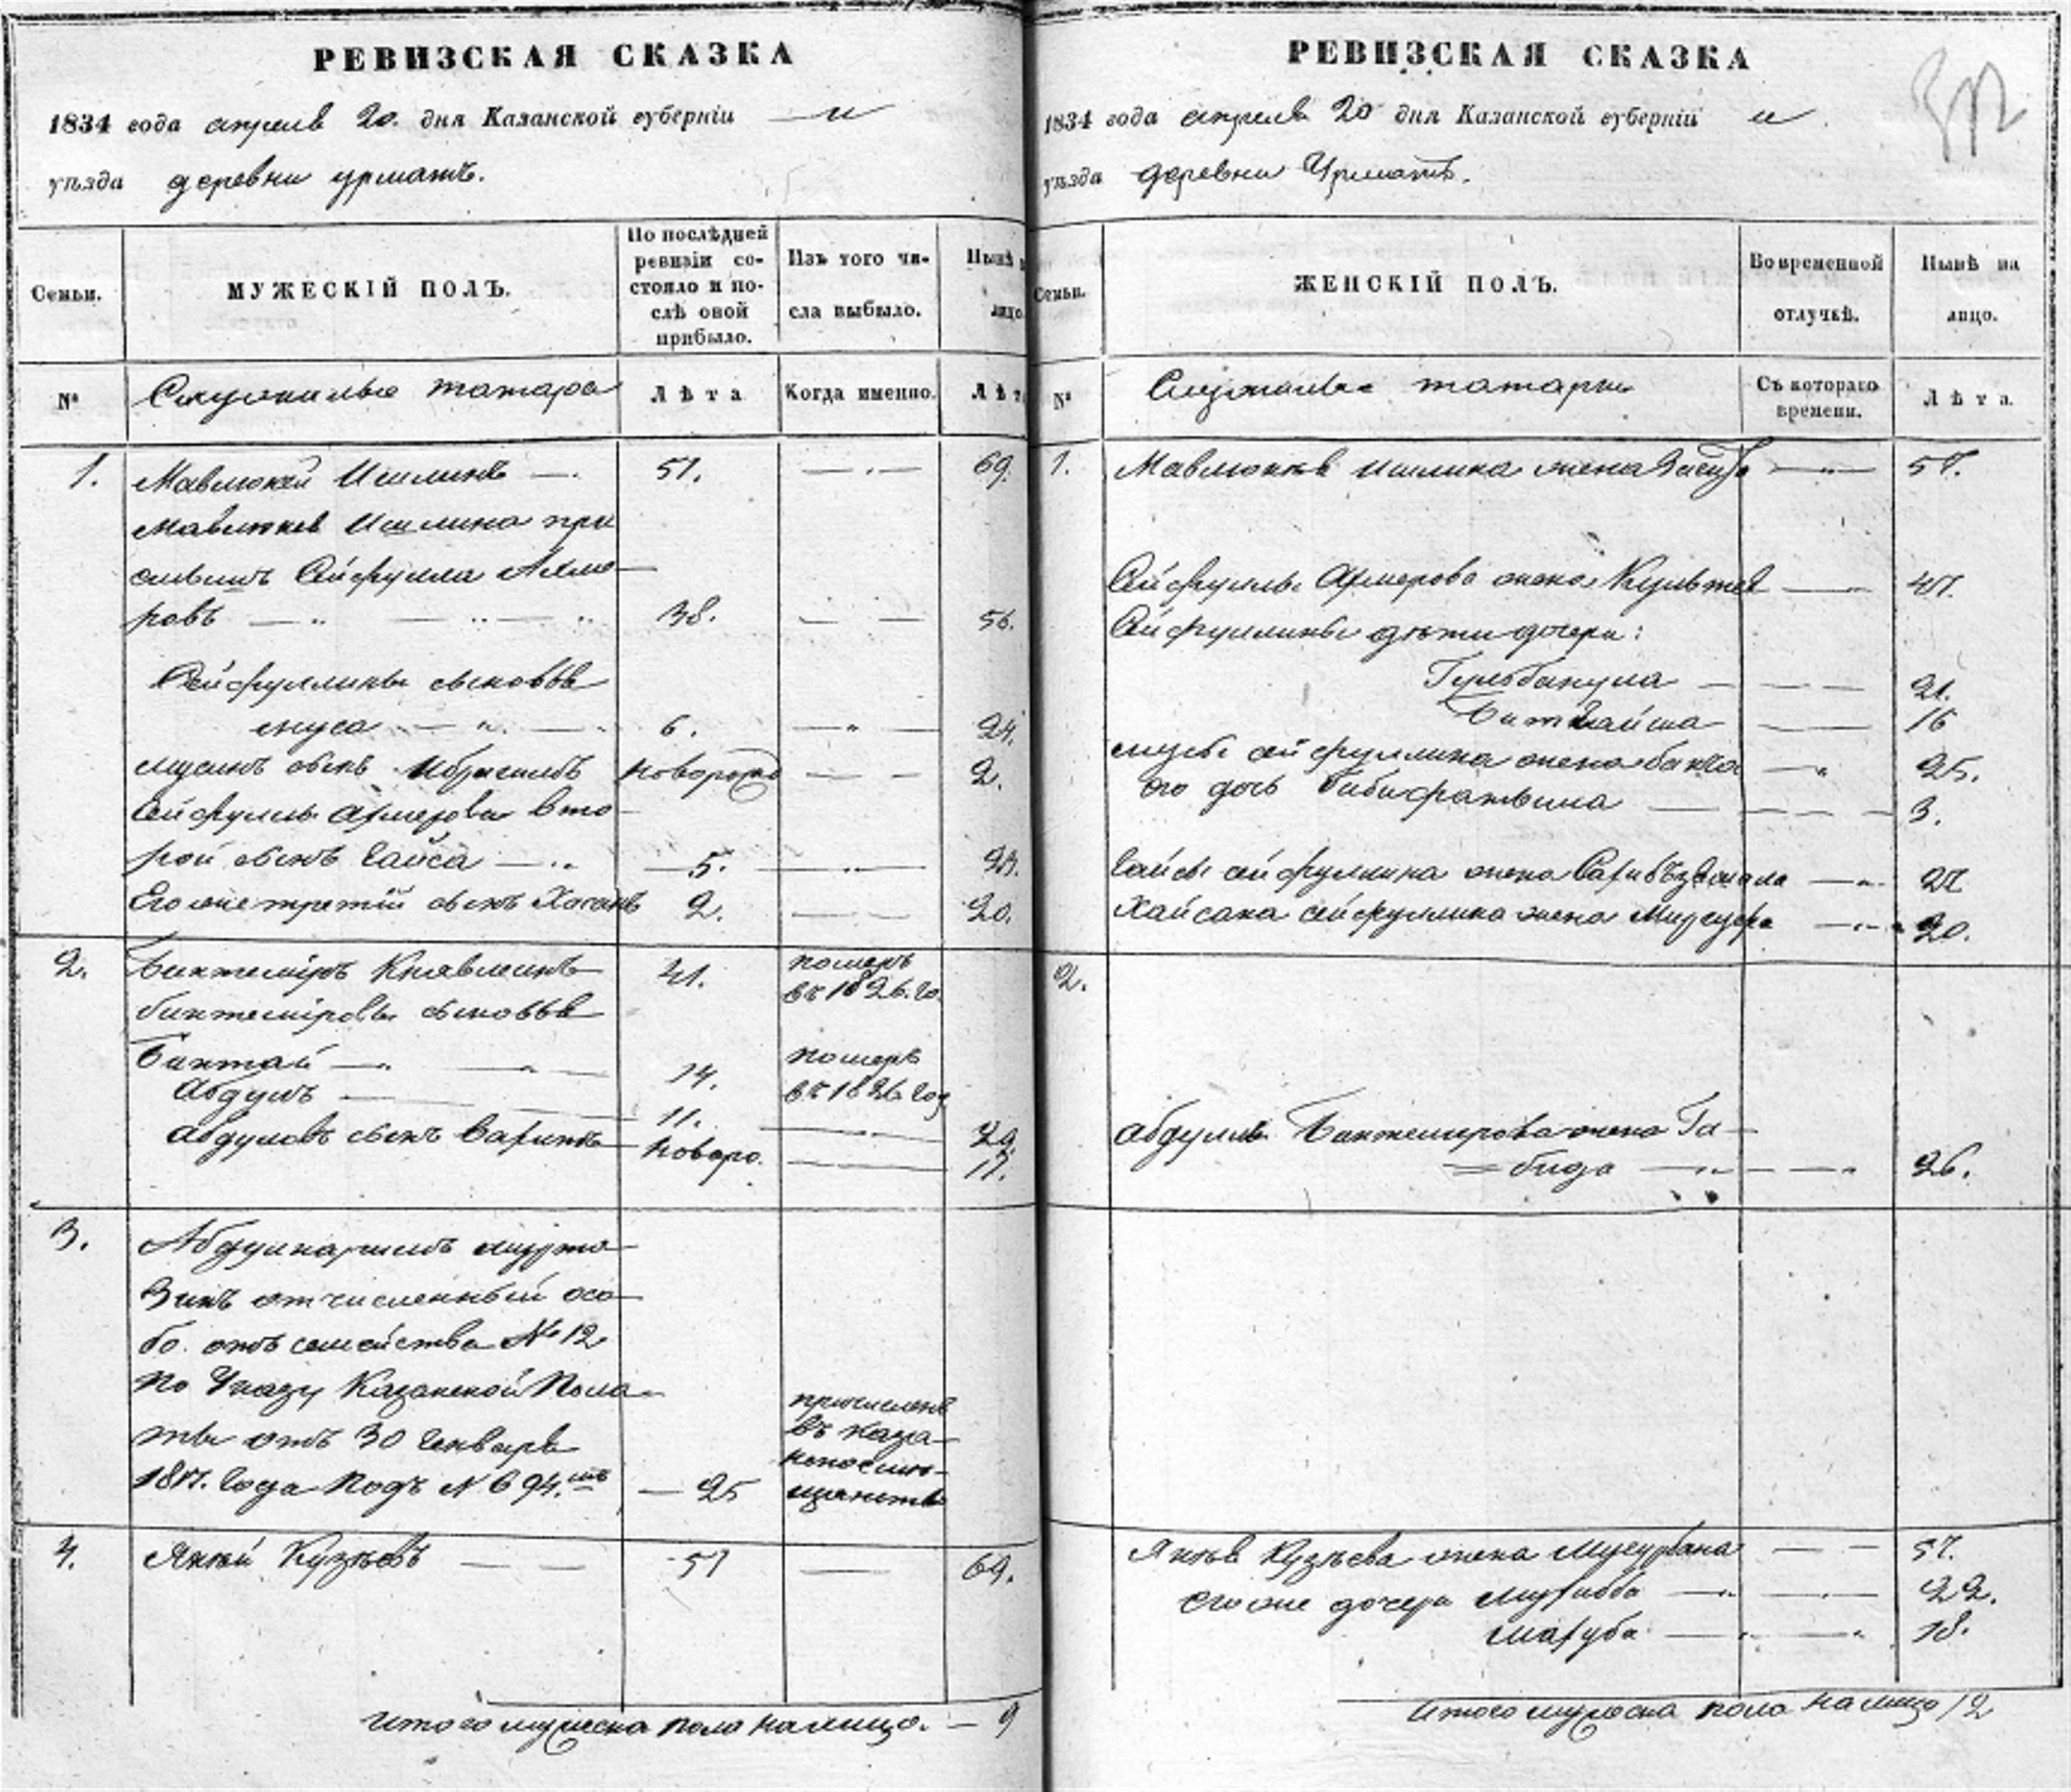 РЕВИЗСКАЯ СКАЗКА
1834 года апреля 20. дня Казанской губерніи — и
уѣзда деревни урматъ.
Семьи.
МУЖЕСКІЙ ПОЛЪ.
По послѣдней
ревизіи со-
стояло и по-
слѣ оной
прибыло.
Изъ того чи-
сла выбыло.
Нынѣ
лицо.
№
Служилые татара
Лѣта
Когда именно.
1.
Мавлюкей Ишлинъ — 51. — 69.
Мавлюкея Ишлина при
Сейфулла Ахме-
ровъ — 38. — 56.
Сейфуллины сыновья
муса — 6. — 24.
мусинъ сынъ Ибрагимъ — 2.
Сейфуллы Ахмерова вто-
рой сынъ Гайса — 5. — 23.
Его же третій сынъ Хасанъ 2. — 20.
2.
Биктеміръ 41. померъ
въ 1826. го.
биктеміровы сыновья
Биктай — 14. померъ
въ 1826 год
Абдулъ — 11. — 29.
абдуловъ сынъ Новоро. — 17.
3.
Абдулкаримъ мурта-
зинъ отчисленный осо-
бо. отъ семейства № 12
По Указу Казанской Пала-
ты отъ 30 Генваря
1817. Года Подъ № 694.мъ — 25
причисленъ
въ каза-
4.
Якей Кузѣевъ — 51 — 69.
Итого мужеска пола налицо. — 9
РЕВИЗСКАЯ СКАЗКА
1834 года апреля 20 дня Казанской губерніи и
уѣзда деревни Урматъ.
Семьи.
ЖЕНСКІЙ ПОЛЪ.
Во временной
отлучкѣ.
Нынѣ на
лицо.
№
Служилые татарки
Съ котораго
времени.
Лѣта.
1.
Мавлюкея ишлина жена — 57.
Сейфуллы Ахмерова жена — 47.
Сейфуллины дѣти дочери:
Гульбану — 21.
16
мусы сейфуллина жена — 25.
его дочь бибифатыма — 3.
Гайсы сейфуллина жена — 27
Хайсана сейфуллина жена — 20.
2.
абдулы Биктемерова жена Га-
=бида — 26.
Якея Кузѣева жена — 57.
его же дочери — 22.
— 18.
Итого пола налицо 12